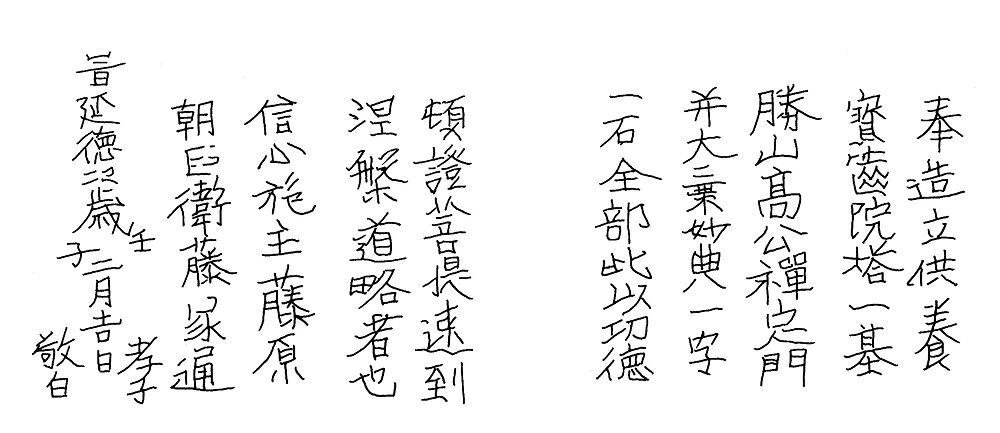 奉造立供養
寳齒院塔一基
勝山髙公禪定門
并大乗妙典一字
一石全部此以功徳
頓證菩提速到
涅槃道略者也
信心施主藤原
朝臣衛藤家通
旹延徳二二歳壬子二月吉日孝子敬白